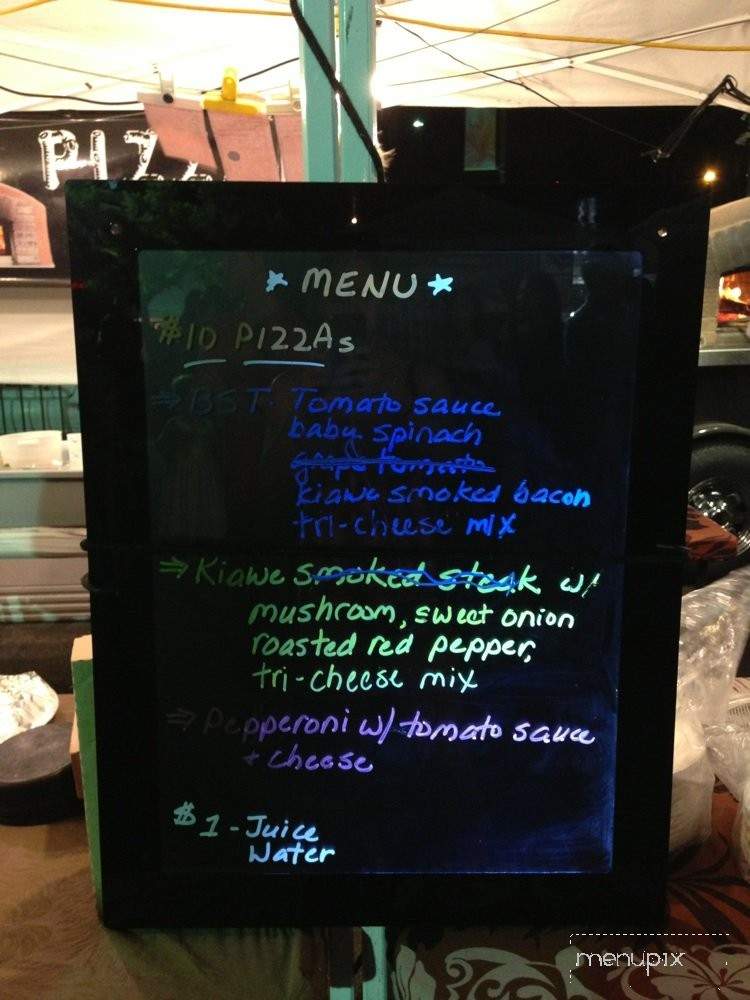 PIZZ
* MENU *
$10 PIZZAs
⇒ BST. Tomato sauce
baby spinach
grape tomato
Kiawe smoked bacon
tri-cheese mix
⇒ Kiawe smoked steak w/
mushroom, sweet onion
roasted red pepper,
tri-cheese mix
⇒ Pepperoni w/ tomato sauce
+ cheese
$1 - Juice
Water
menupix